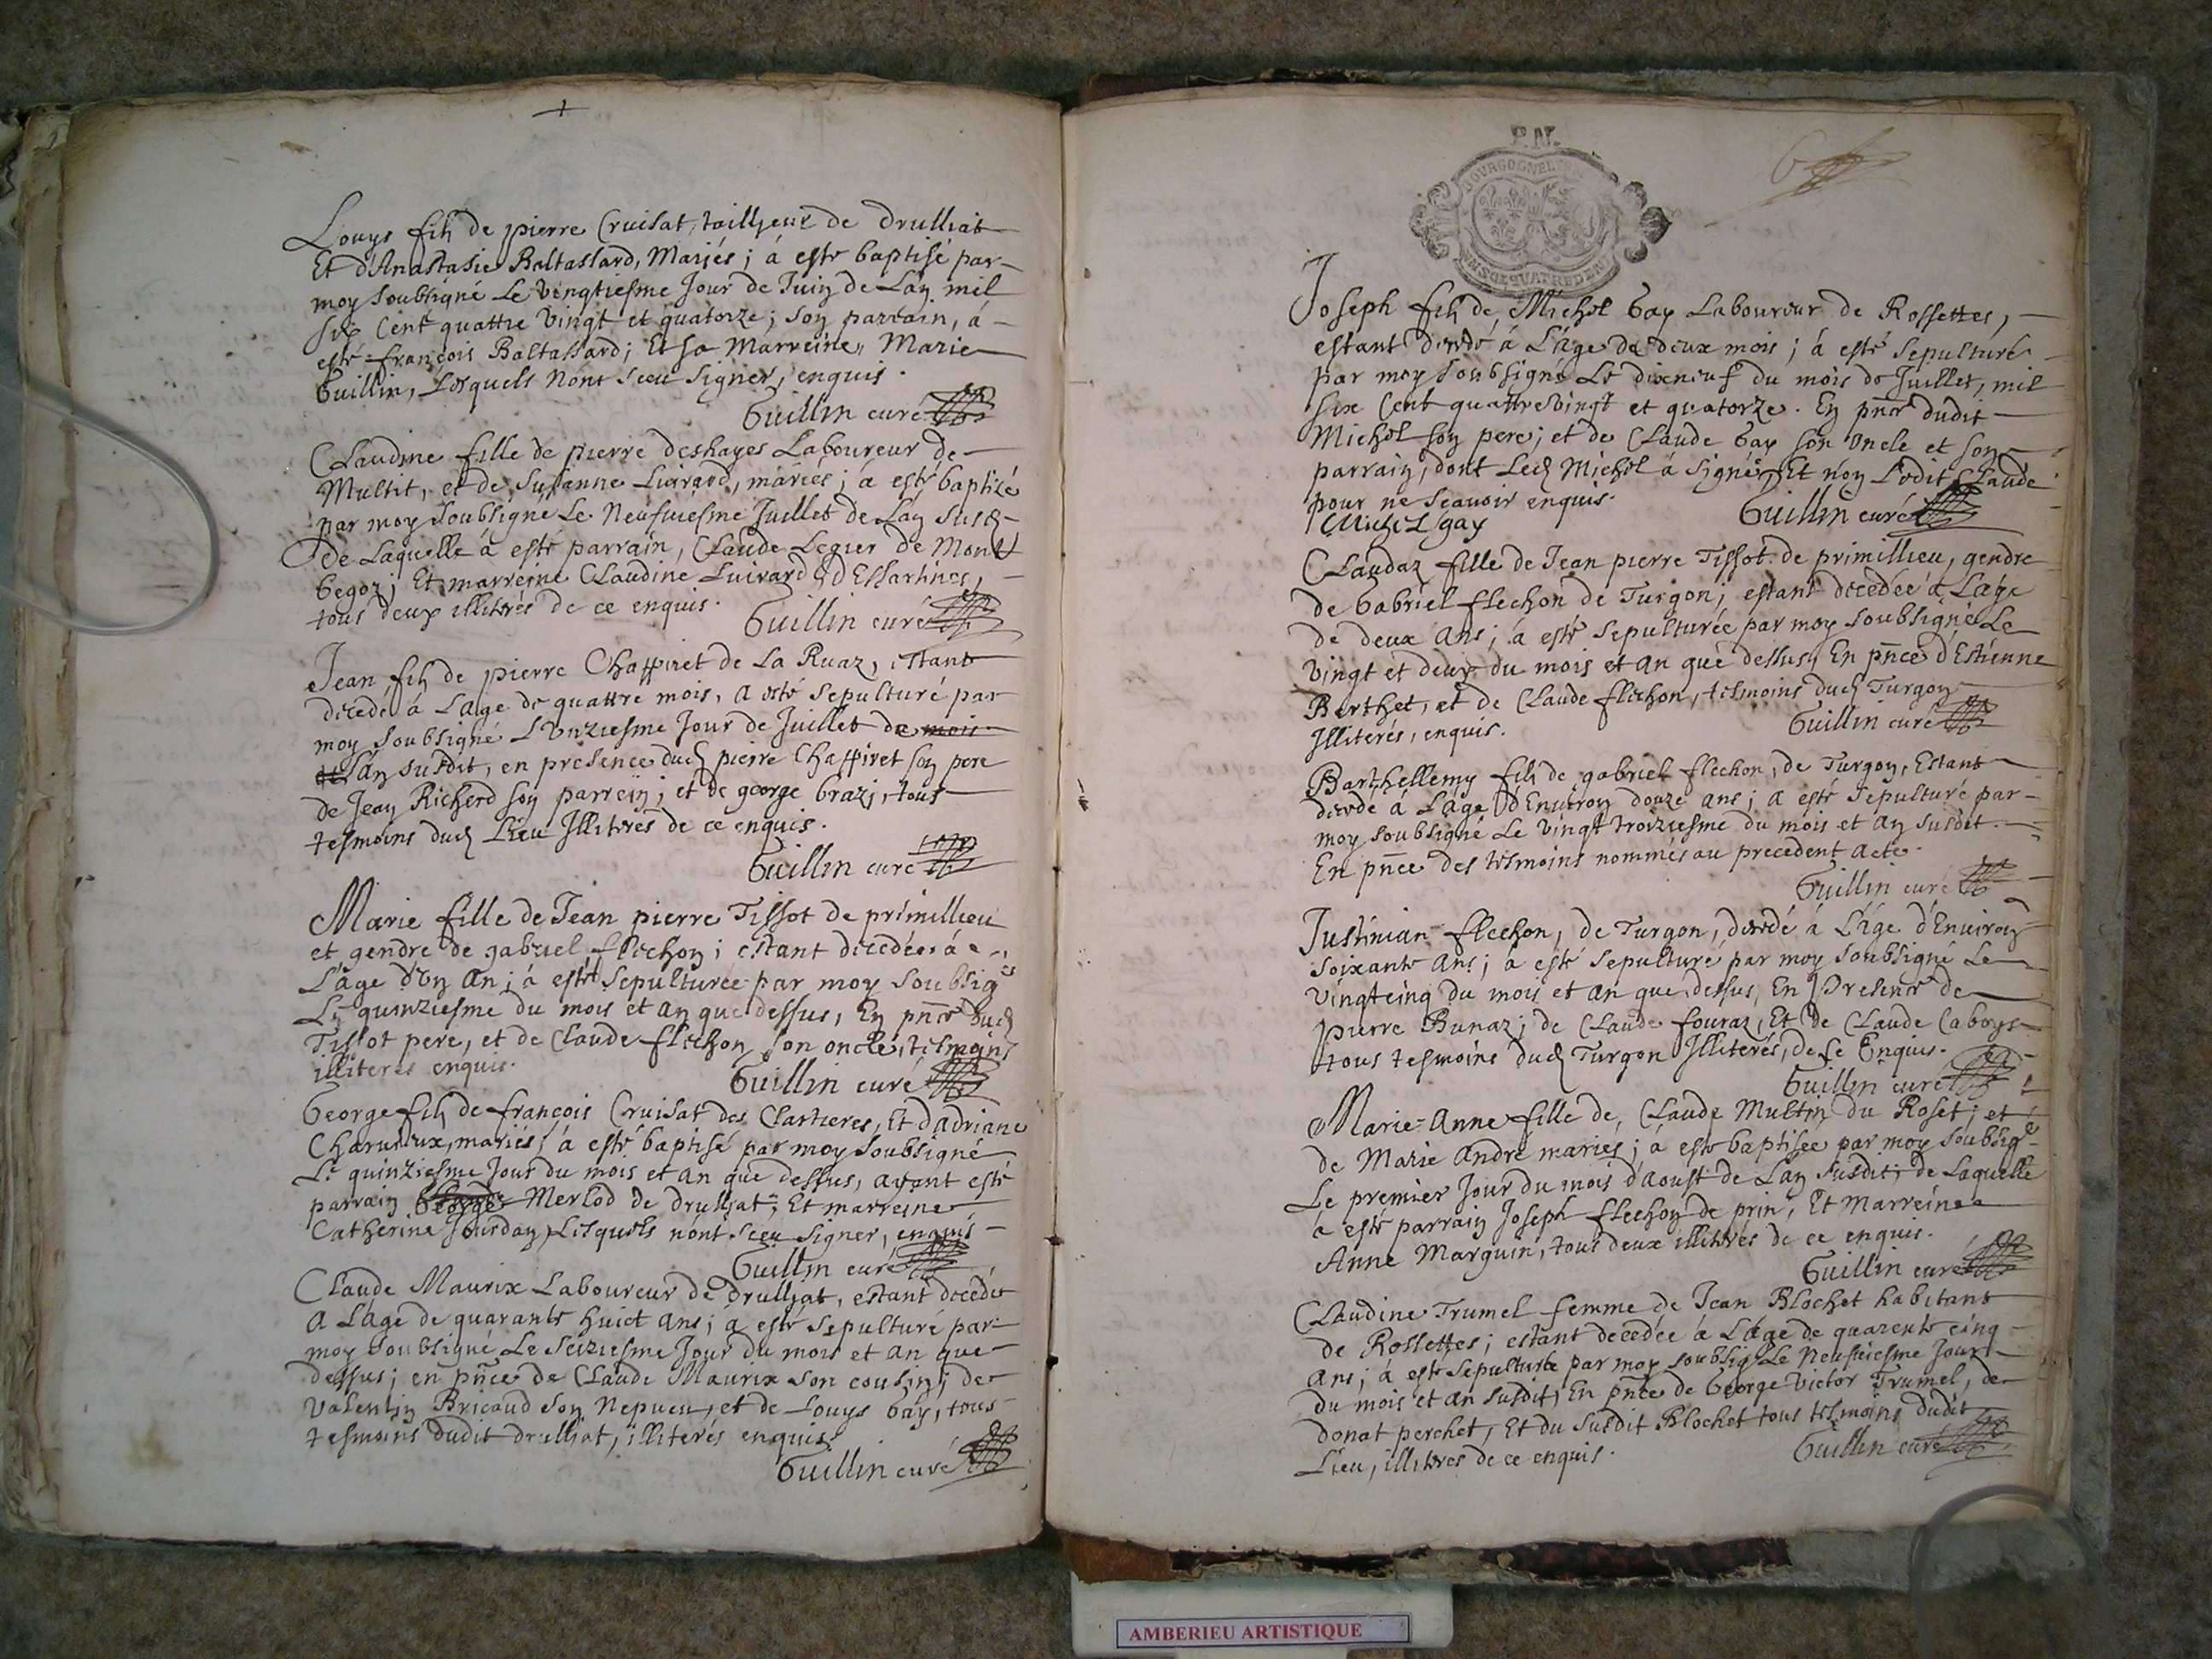 Louys fils de pierre Cruisat, tailljeur de drulliat
Et d'Anastasie Baltassard, Mariés; á esté baptisé par
moy soubsigné Le vingtiesme Jour de Juin de Lan mil
six Cent quattre vingt et quatorze; son parrain, á
esté françois Baltassard; Et sa Marreine, Marie
Guillin, Lesquels n'ont sceu signer, enquis.
Guillin curé
Claudine fille de pierre deshayes Laboureur de
Multit, et de Susanne Luirard, mariés; á esté baptizé
par moy soubsigné Le Neufuiesme Juillet de Lan susd
de Laquelle á esté parrain, Claude Leguer de Mont
begoz; Et marreine Claudine Luirard d'Essartines,
tous deux illiterés de ce enquis.
Guillin curé
Jean, fils de pierre Chappiret de La Ruaz, estant
decedé á Lage de quattre mois, a esté sepulturé par
moy soubsigné L'Unziesme Jour de Juillet de mois
et lan susdit, en presence dud pierre Chappiret son pere
de Jean Richerd son parrein; et de george brazj, tous
tesmoins dud Lieu Illiterés de ce enquis.
Guillin curé
Marie fille de Jean pierre Tissot de primillieu
et gendre de gabriel flechon; estant decedée á
Lâge d'Un An; á esté sepulturée par moy soubsigé
Le quinziesme du mois et an que dessus, En pnce dud
Tissot pere, et de Claude flechon son oncle, tesmoins
illiterés enquis.
Guillin curé
George fils de françois Cruisat des Clartieres, Et d'adriane
Charuieux, mariés; á esté baptisé par moy soubsigné
Le quinziesme Jour du mois et an que dessus, ayant esté
parrain George Merlod de drulljat; Et marreine
Catherine Jourdan, Lesquels n'ont sceu signer, enquis
Guillin curé
Claude Maurix Laboureur de drulljat, estant decedé
A Lage de quarante huict ans; á esté sepulturé par
moy soubsigné Le seiziesme Jour du mois et an que
dessus; en pnce de Claude Maurix son cousin; de
Valentin Bricaud son Nepueu, et de Louys Gay, tous
tesmoins dudit drulljat, illiterés enquis.
Guillin curé
P.N.
BOURGOGNE
Joseph fils de Michel Gay Laboureur de Rossettes,
estant decedé á Lâge de deux mois; á esté sepulturé
par moy soubsigné Le dixneuf du mois de Juillet, mil
six Cent quattrevingt et quatorze. En pnce dudit
Michel son pere; et de Claude Gay son Oncle et son
parrain, dont Led Michel á signé, Et non Ledit Claude
pour ne scauoir enquis.
Michel gay
Guillin curé
Claudaz fille de Jean pierre Tissot de primillieu, gendre
de Gabriel flechon de Turgon; estant decedée á Lâge
de deux Ans; á esté sepulturée par moy soubsigné Le
vingt et deux du mois et an que dessus, En pnce d'Estienne
Berthet, et de Claude flechon, tesmoins dud Turgon
Illiterés, enquis.
Guillin curé
Barthellemy fils de gabriel flechon, de Turgon, Estant
decedé á Lâge d'Enuiron douze ans; a esté sepulturé par
moy soubsigné Le vingt troiziesme du mois et an susdit.
En pnce des tesmoins nommés au precedent acte.
Guillin curé
Justinian flechon, de Turgon, decedé á Lâge d'Enuiron
soixante Ans; á esté sepulturé par moy soubsigné Le
vingtcinq du mois et an que dessus, En Presence de
pierre Bunaz; de Claude fouraz, Et de Claude Caboys
tous tesmoins dud Turgon Illiterés, de ce Enquis.
Guillin curé
Marie-Anne fille de, Claude Multin du Roset; et
de Marie André mariés; á esté baptisée par moy soubsigé
Le premier Jour du mois d'Aoust de Lan susdit; de Laquelle
a esté parrain Joseph flechon de prin, Et Marreine
Anne Marguin, tous deux illiterés de ce enquis.
Guillin curé
Claudine Trumel femme de Jean Blochet habitant
de Rossettes; estant decedée á Lâge de quarente cinq
Ans; á esté sepulturée par moy soubsig Le Neufuiesme Jour
du mois et an susdit, En pnce de George Victor Trumel, de
donat perchet, Et du susdit Blochet tous tesmoins dudit
Lieu, illiterés de ce enquis.
Guillin curé
AMBERIEU ARTISTIQUE